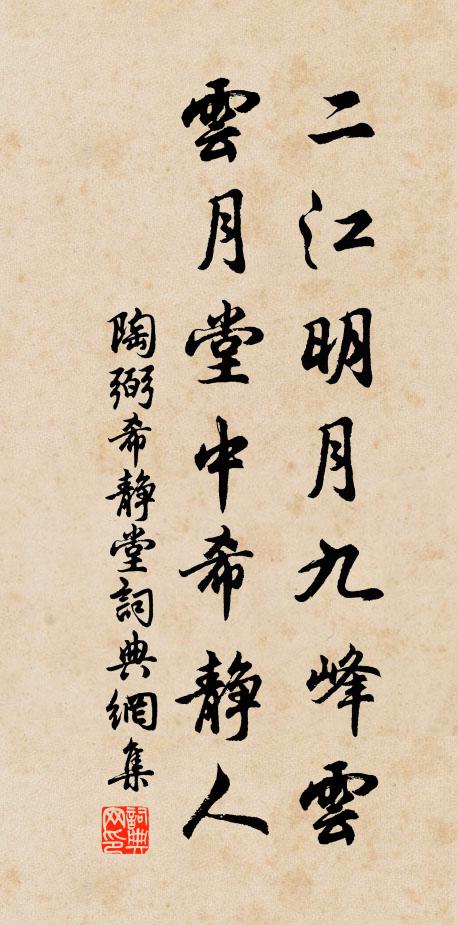 二江明月九峰雲
雲月堂中希靜人
陶弼希靜堂詞典網集
詞典网印